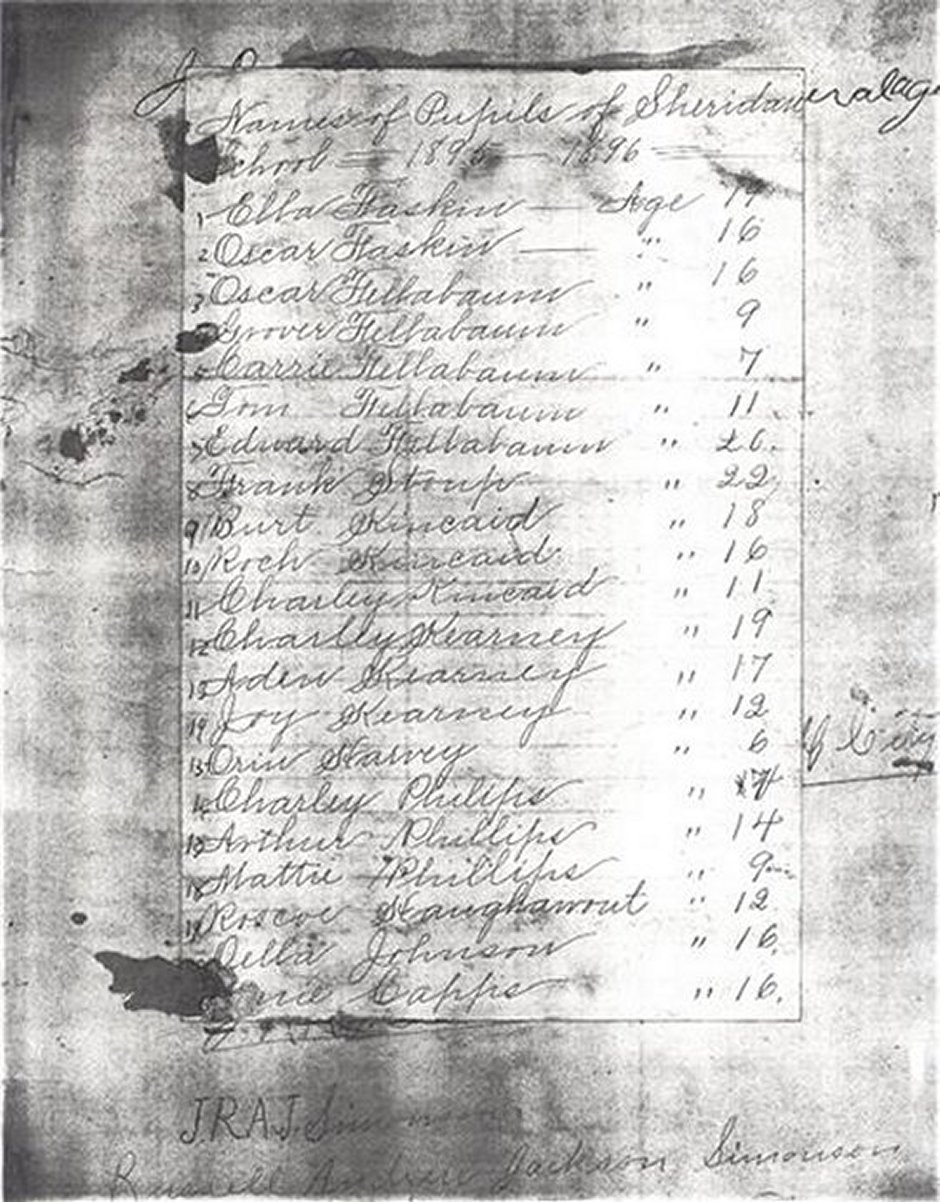 Names of Pupils of Sheridan
School — 1895 — 1896 —
1 Ella Haskin — Age 19
2 Oscar Haskin — " 16
3 Oscar Fellabaum " 16
Grover Fellabaum " 9
5 Carrie Fellabaum " 7
6 Tom Fellabaum " 11
7 Edward Fellabaum " 20
8 Frank Stoup " 22
9 Burt Kincaid " 18
10 Roch Kincaid " 16
11 Charley Kincaid " 11
12 Charley Kearney " 19
13 Aden Kearney " 17
14 Joy Kearney " 12
15 Orin Harvey " 6
16 Charley Philips "
17 Arthur Phillips " 14
18 Mattie Phillips " 9
19 Roscoe Haughawout " 12
Della Johnson " 16
Capps " 16
J.R.A.J.
Russell Andrew Jackson Simonson